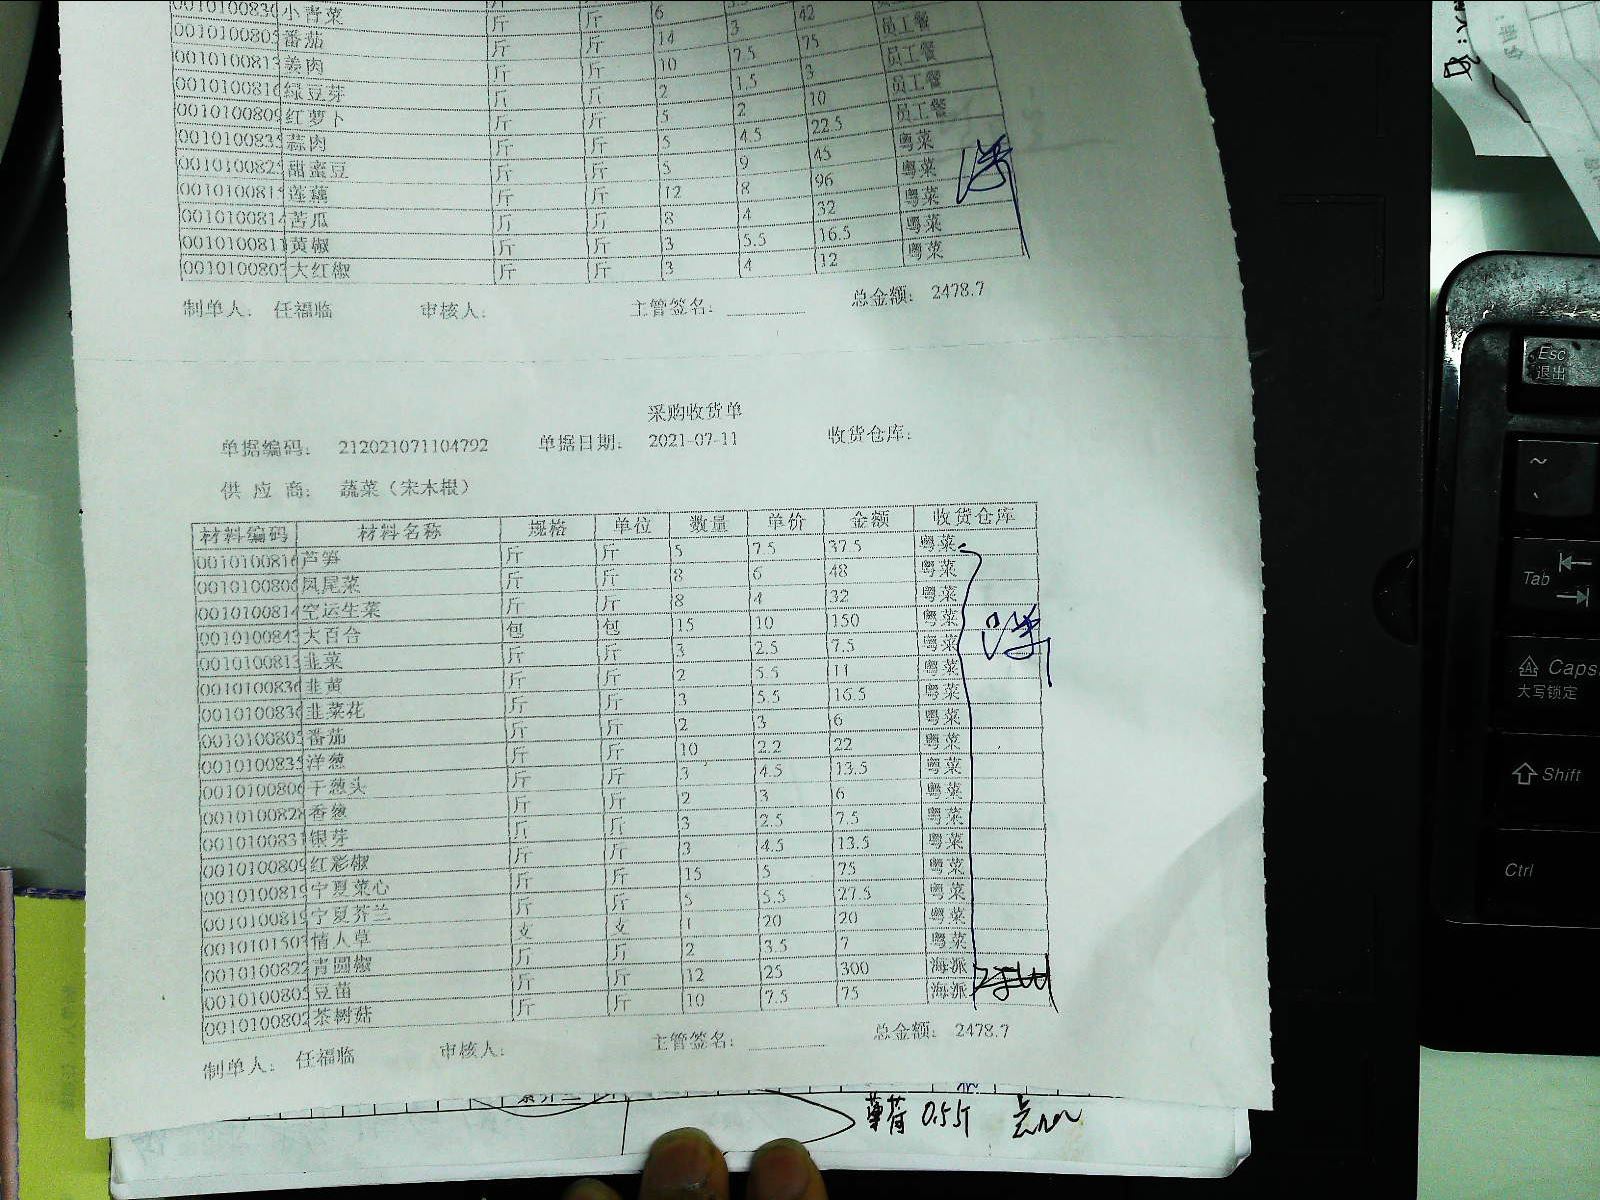 小青菜 斤 斤 6 42
0010100805 番茄 斤 斤 14 3 42 员工餐
0010100813 姜肉 斤 斤 10 7.5 75 员工餐
0010100816 绿豆芽 斤 斤 2 1.5 3 员工餐
0010100809 红萝卜 斤 斤 5 2 10 员工餐
0010100835 蒜肉 斤 斤 5 4.5 22.5 粤菜
001010082 甜蜜豆 斤 斤 5 9 45 粤菜
001010081 莲藕 斤 斤 12 8 96 粤菜
0010100814 苦瓜 斤 斤 8 4 32 粤菜
0010100811 黄椒 斤 斤 3 5.5 16.5 粤菜
001010080 大红椒 斤 斤 3 4 12 粤菜
制单人: 任福临 审核人: 主管签名: 总金额: 2478.7
采购收货单
单据编码: 212021071104792 单据日期: 2021-07-11 收货仓库:
供 应 商: 蔬菜（宋木根）
材料编码 材料名称 规格 单位 数量 单价 金额 收货仓库
0010100816 芦笋 斤 斤 5 7.5 37.5 粤菜
0010100806 凤尾菜 斤 斤 8 6 48 粤菜
0010100814 空运生菜 斤 斤 8 4 32 粤菜
0010100843 大百合 包 包 15 10 150 粤菜
0010100813 韭菜 斤 斤 3 2.5 7.5 粤菜
0010100836 韭黄 斤 斤 2 5.5 11 粤菜
0010100836 韭菜花 斤 斤 3 5.5 16.5 粤菜
0010100805 番茄 斤 斤 2 3 6 粤菜
0010100835 洋葱 斤 斤 10 2.2 22 粤菜
0010100806 干葱头 斤 斤 3 4.5 13.5 粤菜
0010100828 香葱 斤 斤 2 3 6 粤菜
0010100831 银芽 斤 斤 3 2.5 7.5 粤菜
0010100809 红彩椒 斤 斤 3 4.5 13.5 粤菜
0010100819 宁夏菜心 斤 斤 15 5 75 粤菜
0010100819 宁夏芥兰 斤 斤 5 5.5 27.5 粤菜
001010150 情人草 支 支 1 20 20 粤菜
0010100822 青圆椒 斤 斤 2 3.5 7 粤菜
0010100805 豆苗 斤 斤 12 25 300 海派
0010100802 茶树菇 斤 斤 10 7.5 75 海派
制单人: 任福临 审核人: 主管签名: 总金额: 2478.7
薄荷 0.5斤
Esc
退出
~
Tab
Caps
大写锁定
Shift
Ctrl